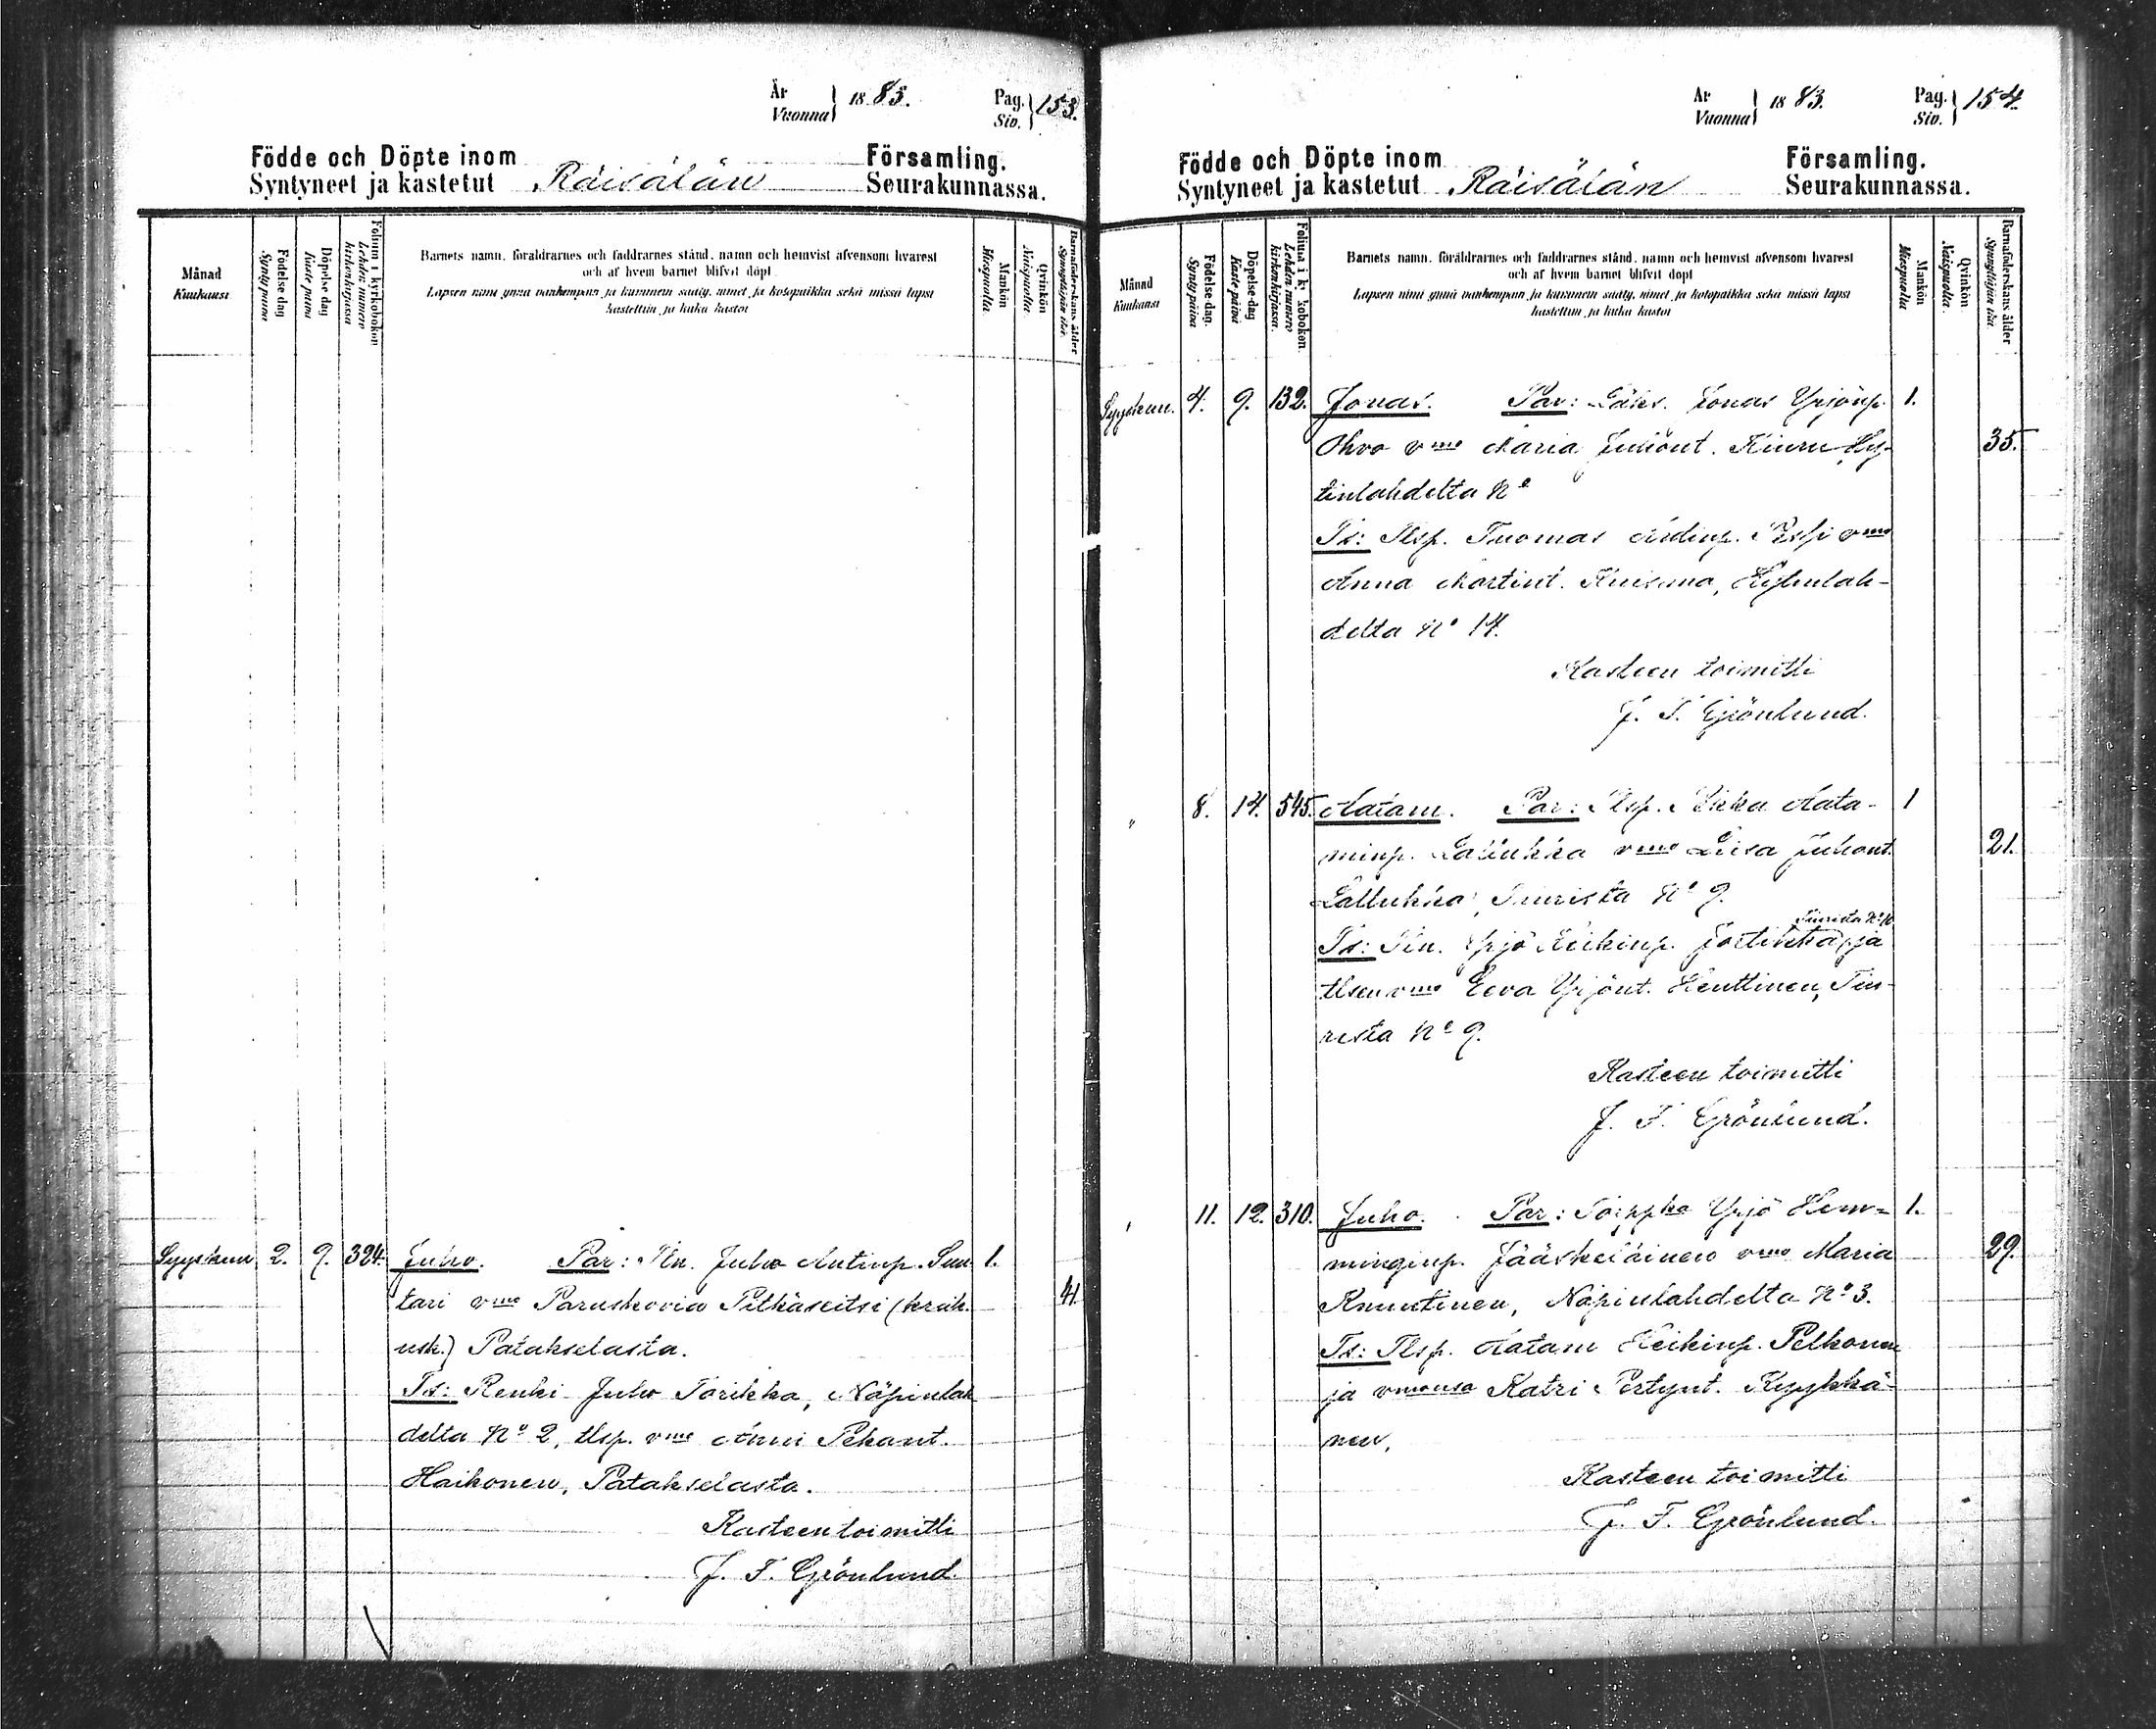 År
Vuonna
1883.
Pag.
Siv.
153.
Födde och Döpte inom Församling.
Syntyneet ja kastetut Räisälän Seurakunnassa.
Månad
Kuukausi
Födelse dag
Synty päiva
Döpelse dag
Kaste päiva
Folium i kyrkoboken
Lehden numero kirkonkirjassa
Barnets namn, föräldrarnes och faddrarnes stånd, namn och hemvist äfvensom hvarest
och af hvem barnet blifvit döpt
Lapsen nimi ynnä vanhempain ja kummein sääty, nimet ja kotopaikka sekä missä lapsi
kastettiin ja kuka kastoi
Mankön
Miespuolta
Qvinkön
Naispuolta
Barnaföderskans ålder
Synnyttäjän ikä
Syyskuu 2. 9. 324. Juho. Par: Juho Antinp. Sun- 1.
tari vmo Paruskovia Pitkäseitsi (kreik. 41
usk.) Patakselasta.
Ts: Renki Juho Torikka, Näpinlah
delta No 2, tlsp. vmo Anni Pekant.
Haikonen, Patakselasta.
Kasteen toimitti
J. F. Grönlund.
År
Vuonna
1883.
Pag.
Siv.
154.
Födde och Döpte inom Församling.
Syntyneet ja kastetut Räisälän Seurakunnassa.
Månad
Kuukausi
Födelse dag.
Synty päivä
Döpelse dag
Kaste päivä
Folium i kyrkoboken.
Lehden numero kirkonkirjassa.
Barnets namn, föräldrarnes och faddrarnes stånd, namn och hemvist äfvensom hvarest
och af hvem barnet blifvit döpt
Lapsen nimi ynnä vanhempain ja kummein sääty, nimet ja kotopaikka sekä missä lapsi
kastettiin ja kuka kastoi
Mankön
Miespuolta
Qvinkön
Naispuolta.
Barnaföderskans ålder
Synnyttäjän ikä
Syyskuu. 4. 9. 132. Jonas. Par: Jonas Yrjönp. 1.
Ohvo vmo Maria Kiuru Hy- 35.
tinlahdelta No
Ts: Tlsp. Tuomas Pesspi vmo
Anna Martint. Kuisma, Hytinlah-
delta No 14.
Kasteen toimitti
J. F. Grönlund.
" 8. 14. 545. Aatam. Par: Tlsp. Pekka Aata- 1
minp. Lallukka vmo Liisa Juhont. 21.
Lallukka, Tiurista No 9.
Tiurista No 10
Ts: Yrjö Heikinp. Jortikka, ja
tlsen vmo Eeva Yrjönt. Henttinen, Tiu-
rista No 9.
Kasteen toimitti
J. F. Grönlund.
" 11. 12. 310. Juho. Par: Yrjö Hem- 1.
minginp. Jääskeläinen vmo Maria 29.
Knuutinen, Näpinlahdelta No 3.
Ts: Tlsp. Aatam Heikinp. Pelkonen
ja vmonsa Katri Pertynt. Kyykkä-
nen,
Kasteen toimitti
J. F. Grönlund.